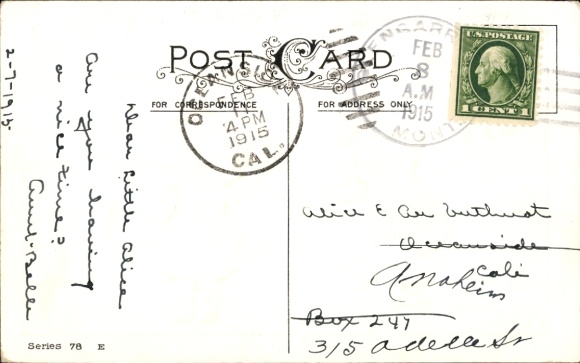 POST CARD
FOR CORRESPONDENCE
FOR ADDRESS ONLY
2-7-1915
Dear Little Alice
Are you having
a nice time?
Aunt Belle
FEB
4 PM
1915
CAL.
FEB
8
A.M
1915
MONT.
U.S. POSTAGE
1 CENT 1
Alice E
Oceanside
Cali
Anaheim
Box 247
315 Adelle St
Series 78 E